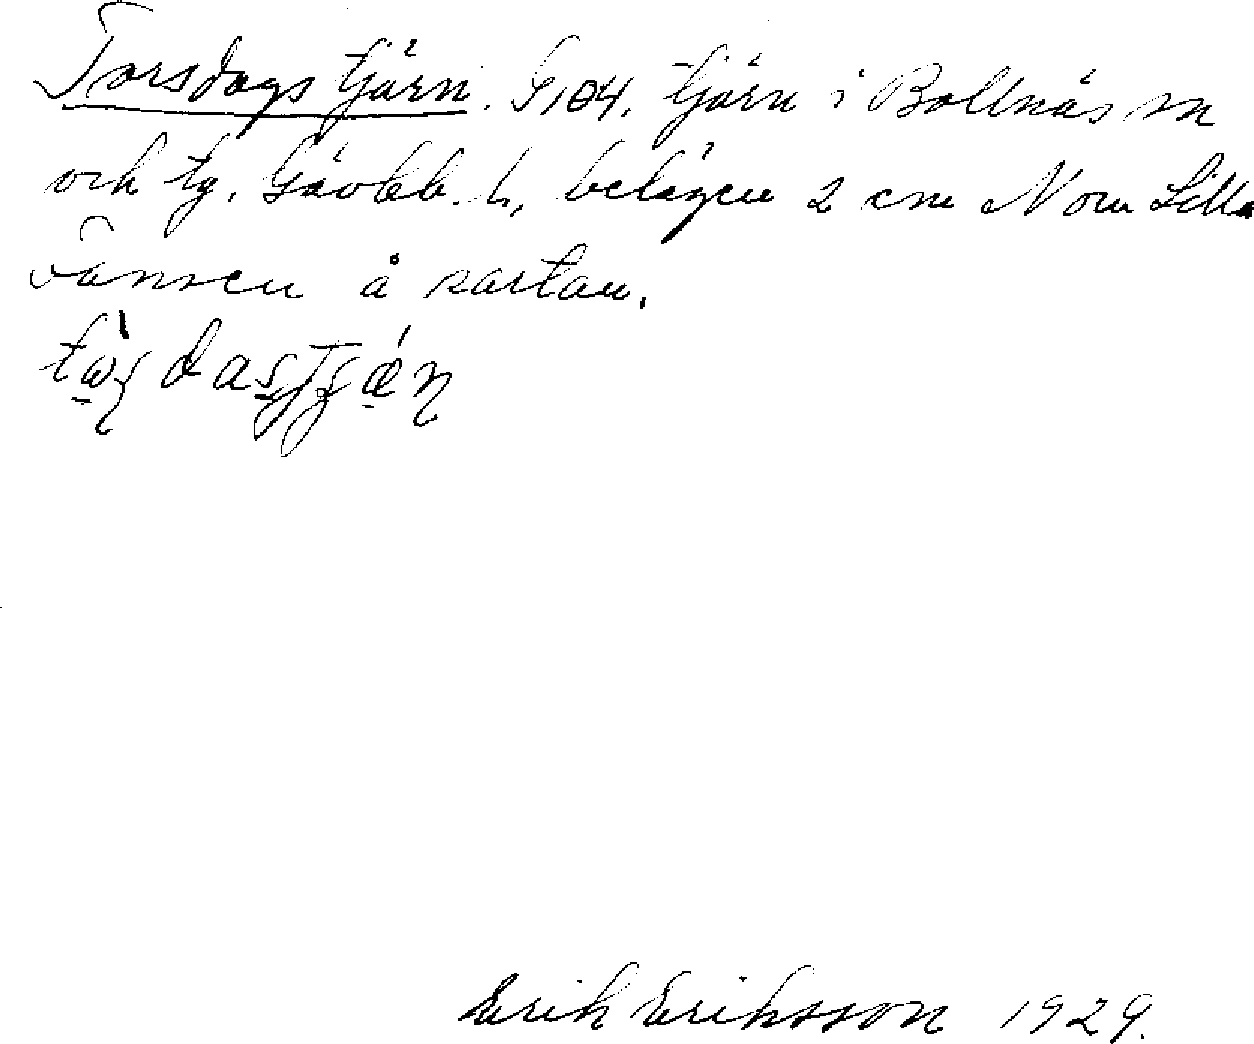 Torsdagstjärn. G,104, tjärn i Bollnäs sn
och tg. Gävleb. l., belägen 2 cm N om Lilla
Tansen å kartan.
Erik Eriksson 1929.